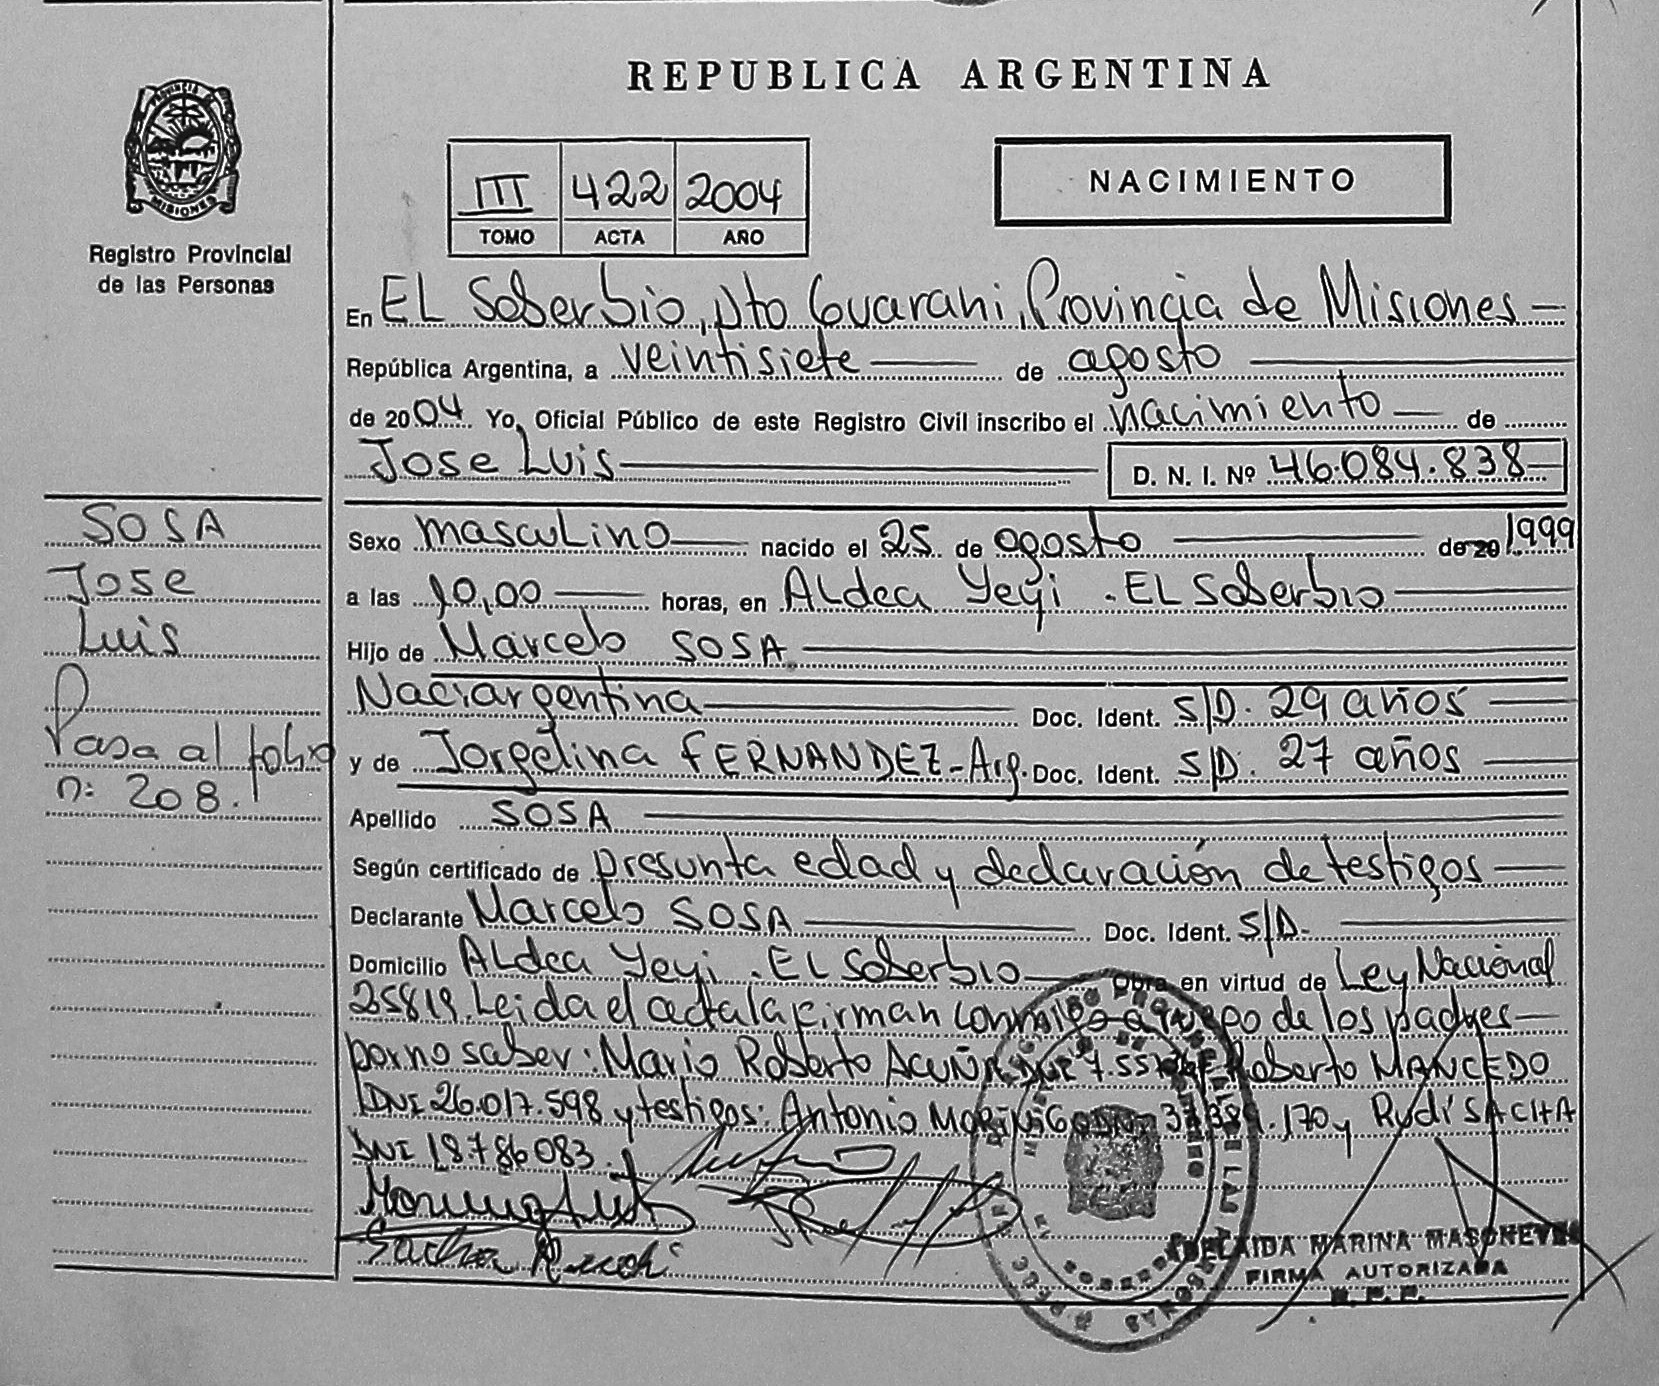 REPUBLICA ARGENTINA
PROVINCIA DE
MISIONES
Registro Provincial
de las Personas
III 422 2004
TOMO ACTA AÑO
NACIMIENTO
En EL Soberbio, Dto Guarani, Provincia de Misiones
República Argentina, a veintisiete de agosto
de 2004 Yo, Oficial Público de este Registro Civil inscribo el nacimiento de
Jose Luis D. N. I. Nº 46.084.838
SOSA
Jose
Luis
Pasa al folio
n: 208.
Sexo masculino nacido el 25 de agosto de 20 1999
a las 10,00 horas, en Aldea Yeyi . EL Soberbio
Hijo de Marcelo SOSA
Naci.argentina Doc. Ident. S/D. 29 años
y de Jorgelina FERNANDEZ-Arg. Doc. Ident. S/D. 27 años
Apellido SOSA
Según certificado de presunta edad y declaración de testigos
Declarante Marcelo SOSA Doc. Ident. S/D.
Domicilio Aldea Yeyi . EL Soberbio Obra en virtud de Ley Nacional
25819. Leida el acta la firman conmigo a ruego de los padres
por no saber: Mario Roberto ACUÑA Roberto MANCEDO
DNI 26.017.598 y testigos: Antonio MORINIGO .170 y Rudi SACHA
DNI 18786083.
ADELAIDA MARINA
FIRMA AUTORIZADA